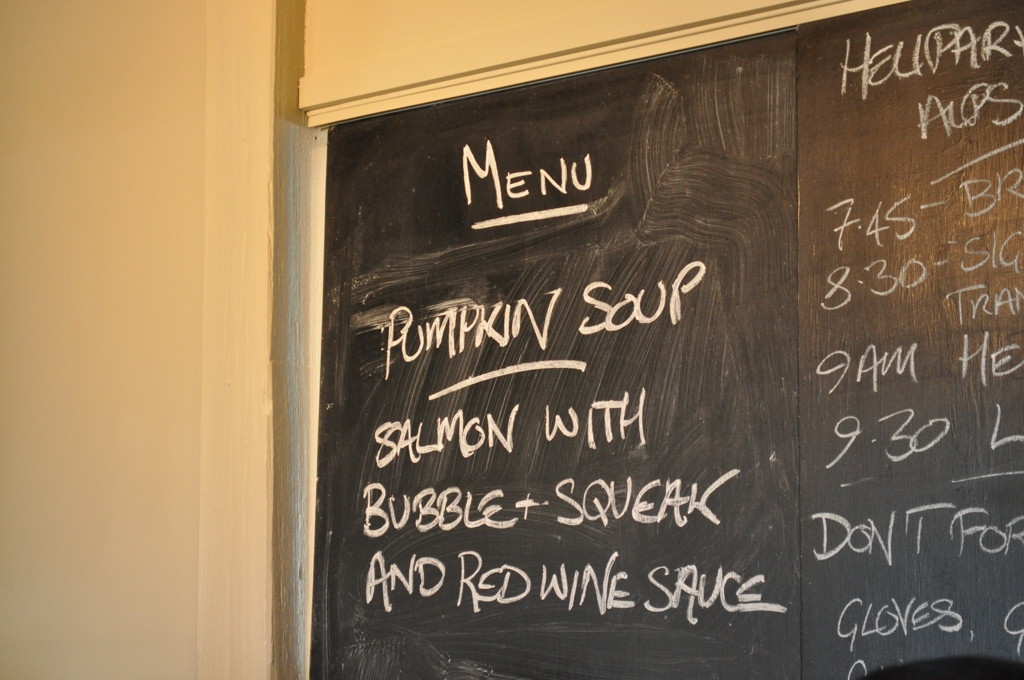 MENU
PUMPKIN SOUP
SALMON WITH
BUBBLE + SQUEAK
AND RED WINE SAUCE
ALPS
7.45 - BR
8.30 - SIG
TRAN
9AM HE
9.30 L
DON'T FOR
GLOVES, G